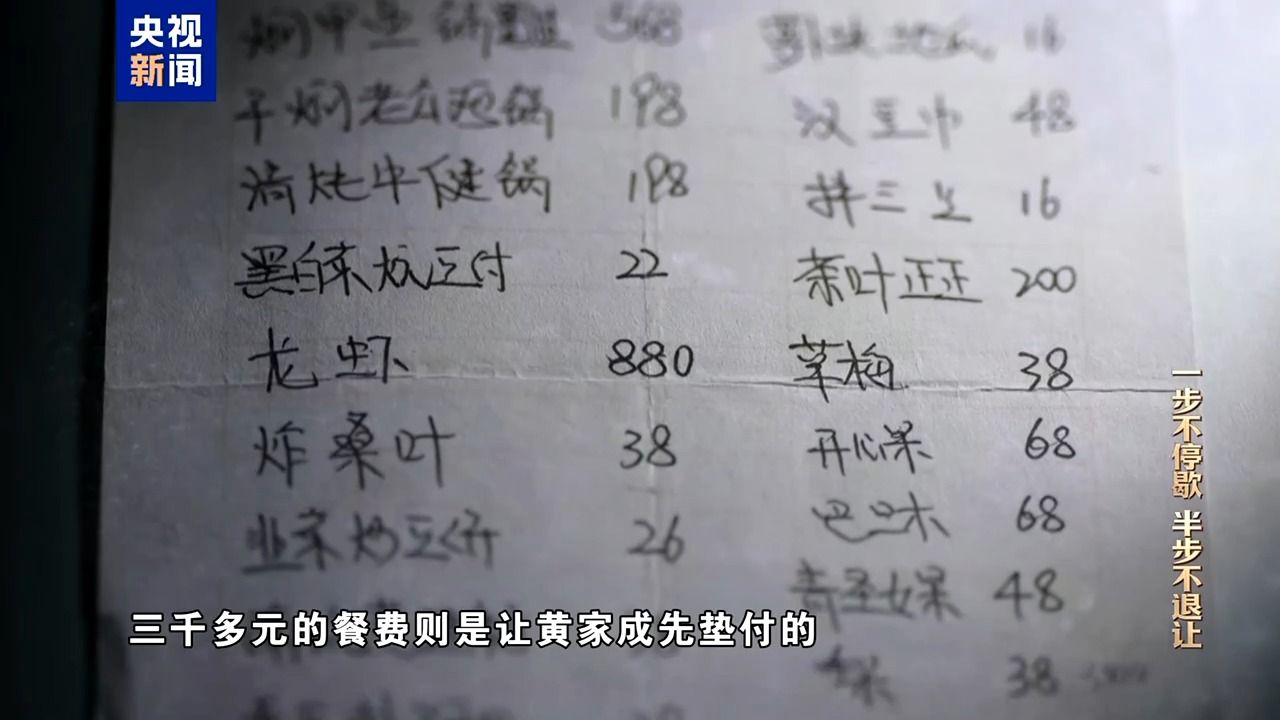 央视
新闻
干焖老公鸡锅 198
清炖牛健锅 198
黑白菜炆豆付 22
龙虾 880
炸桑叶 38
韭菜炒豆付 26
16
汉豆巾 48
拌三生 16
茶叶正正 200
草梅 38
开心果 68
巴旦木 68
青圣女果 48
38
三千多元的餐费则是让黄家成先垫付的
一步不停歇 半步不退让